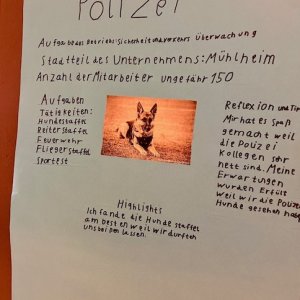 Polizei
Aufgabe des Betriebs: Sicherheit und Verkehrs Überwachung
Stadtteil des Unternehmens: Mühlheim
Anzahl der Mitarbeiter ungefähr 150
Aufgaben
Tätigkeiten:
Hundestaffel
Reiter Staffel
Feuerwehr
Flieger Staffel
Sportest
Reflexion und Tip
Mir hat es Spaß
gemacht weil
die Polizei
Kollegen sehr
nett sind. Meine
Erwartungen
wurden Erfült
weil wir die Polizei
Hunde gesehen hab
Highlights
Ich fande die Hunde staffel
am besten weil wir durften
uns beißen lassen.